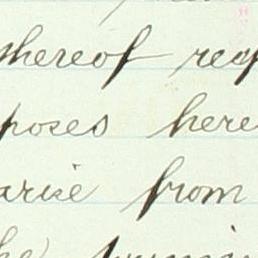 thereof req
poses here
arise from
he